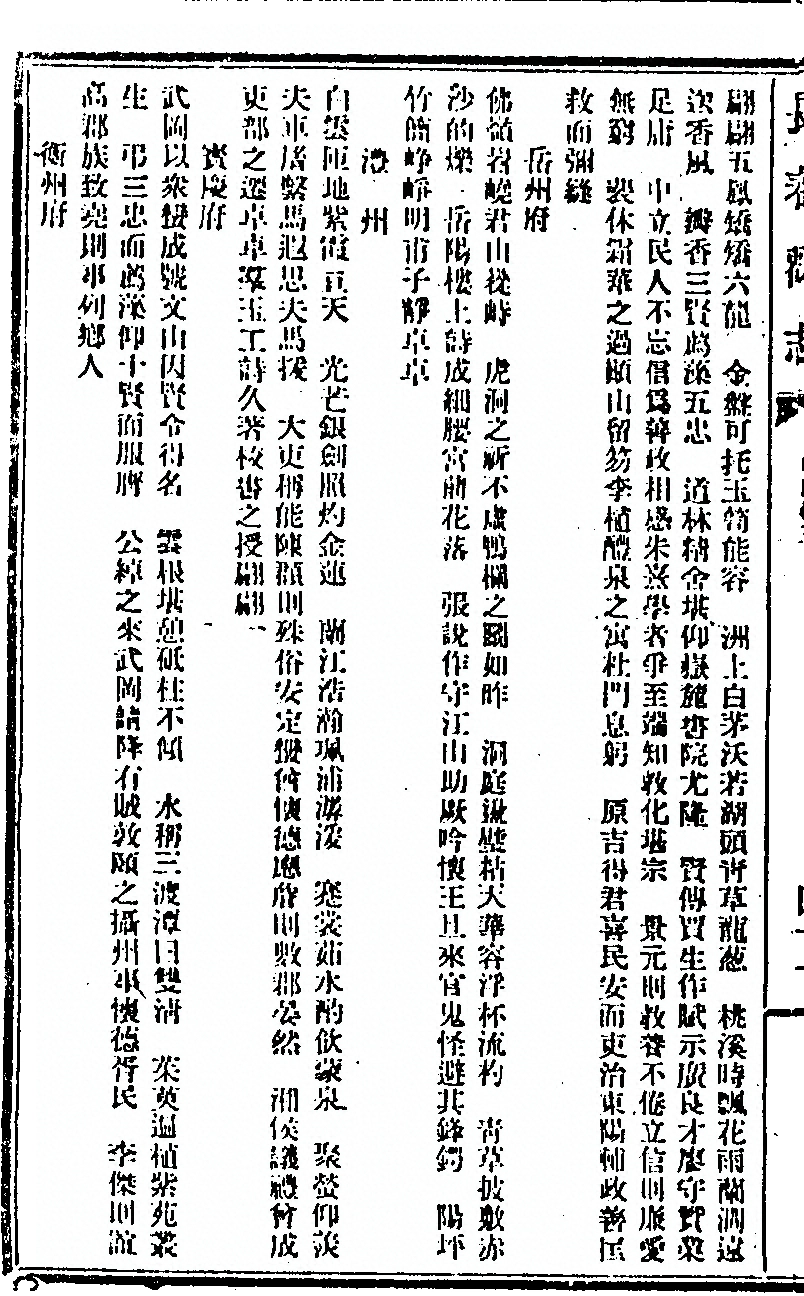 長春縣志
翩翩五鳳矯矯六龍　金盤可托玉筍能容　洲上白茅沃若湖頭青草蘢葱　桃溪時飄花雨蘭澗遠
送香風　瓣香三賢薦藻五忠　道林精舍堪仰嶽麓書院尤隆　賢傅賈生作賦示廣良才廖守賢業
足庸　中立民人不忘信爲善政相感朱熹學者爭至端知敎化堪宗　景元則救養不倦立信則服愛
無窮　裴休霜華之過頤山留笏李植醴泉之寓杜門息躬　原吉得君喜民安而吏治東陽輔政善匡
救而彌縫
岳州府
佛嶺岧嶢君山從峙　虎洞之新不虛鴨欄之圖如昨　洞庭撼壁枯天華容浮杯流杓　青草披敷赤
沙的爍　岳陽樓上詩成細腰宮前花落　張說作守江山助厥吟懷王旦來官鬼怪避其鋒鍔　陽坪
竹簡崢崢明甫子靜卓卓
澧州
白雲匝地紫霞亘天　光芒銀劍照灼金蓮　蘭江浩瀚珮浦潺湲　褰裳茹水酌飲蒙泉　聚螢仰羨
夫車居繫馬遐思夫馬援　大吏稱能陳顏則殊俗安定懷德應詹則數郡晏然　湘侯議禮曾成
吏部之選車車羣玉工詩久著校書之授翩翩
寶慶府
武岡以衆蠻成號文山因賢令得名　雲根堪憩砥柱不傾　水稱三波潭曰雙清　茱萸逈植紫苑叢
生　弔三忠而薦藻仰十賢而服膺　公綽之來武岡請降有賊敦頤之攝州事懷德胥民　李傑則誼
高郡族致堯則事列鄉人
衡州府